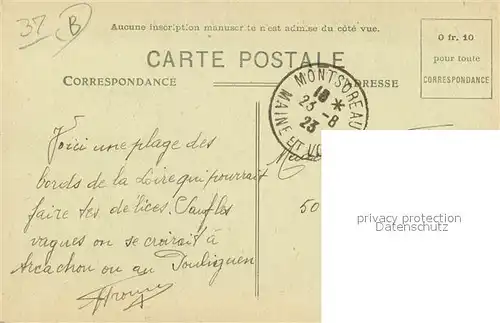 37 B
Aucune inscription manuscrite n'est admise du côté vue.
CARTE POSTALE
0 fr. 10
pour toute
CORRESPONDANCE
CORRESPONDANCE
ADRESSE
MONTSOREAU
18 *
23-8
23
MAINE ET
Voici une plage des
bords de la Loire qui pourrait
faire tes délices. Sauf les
vagues on se croirait à
Arcachon ou au Pouliguen
50
privacy protection
Datenschutz